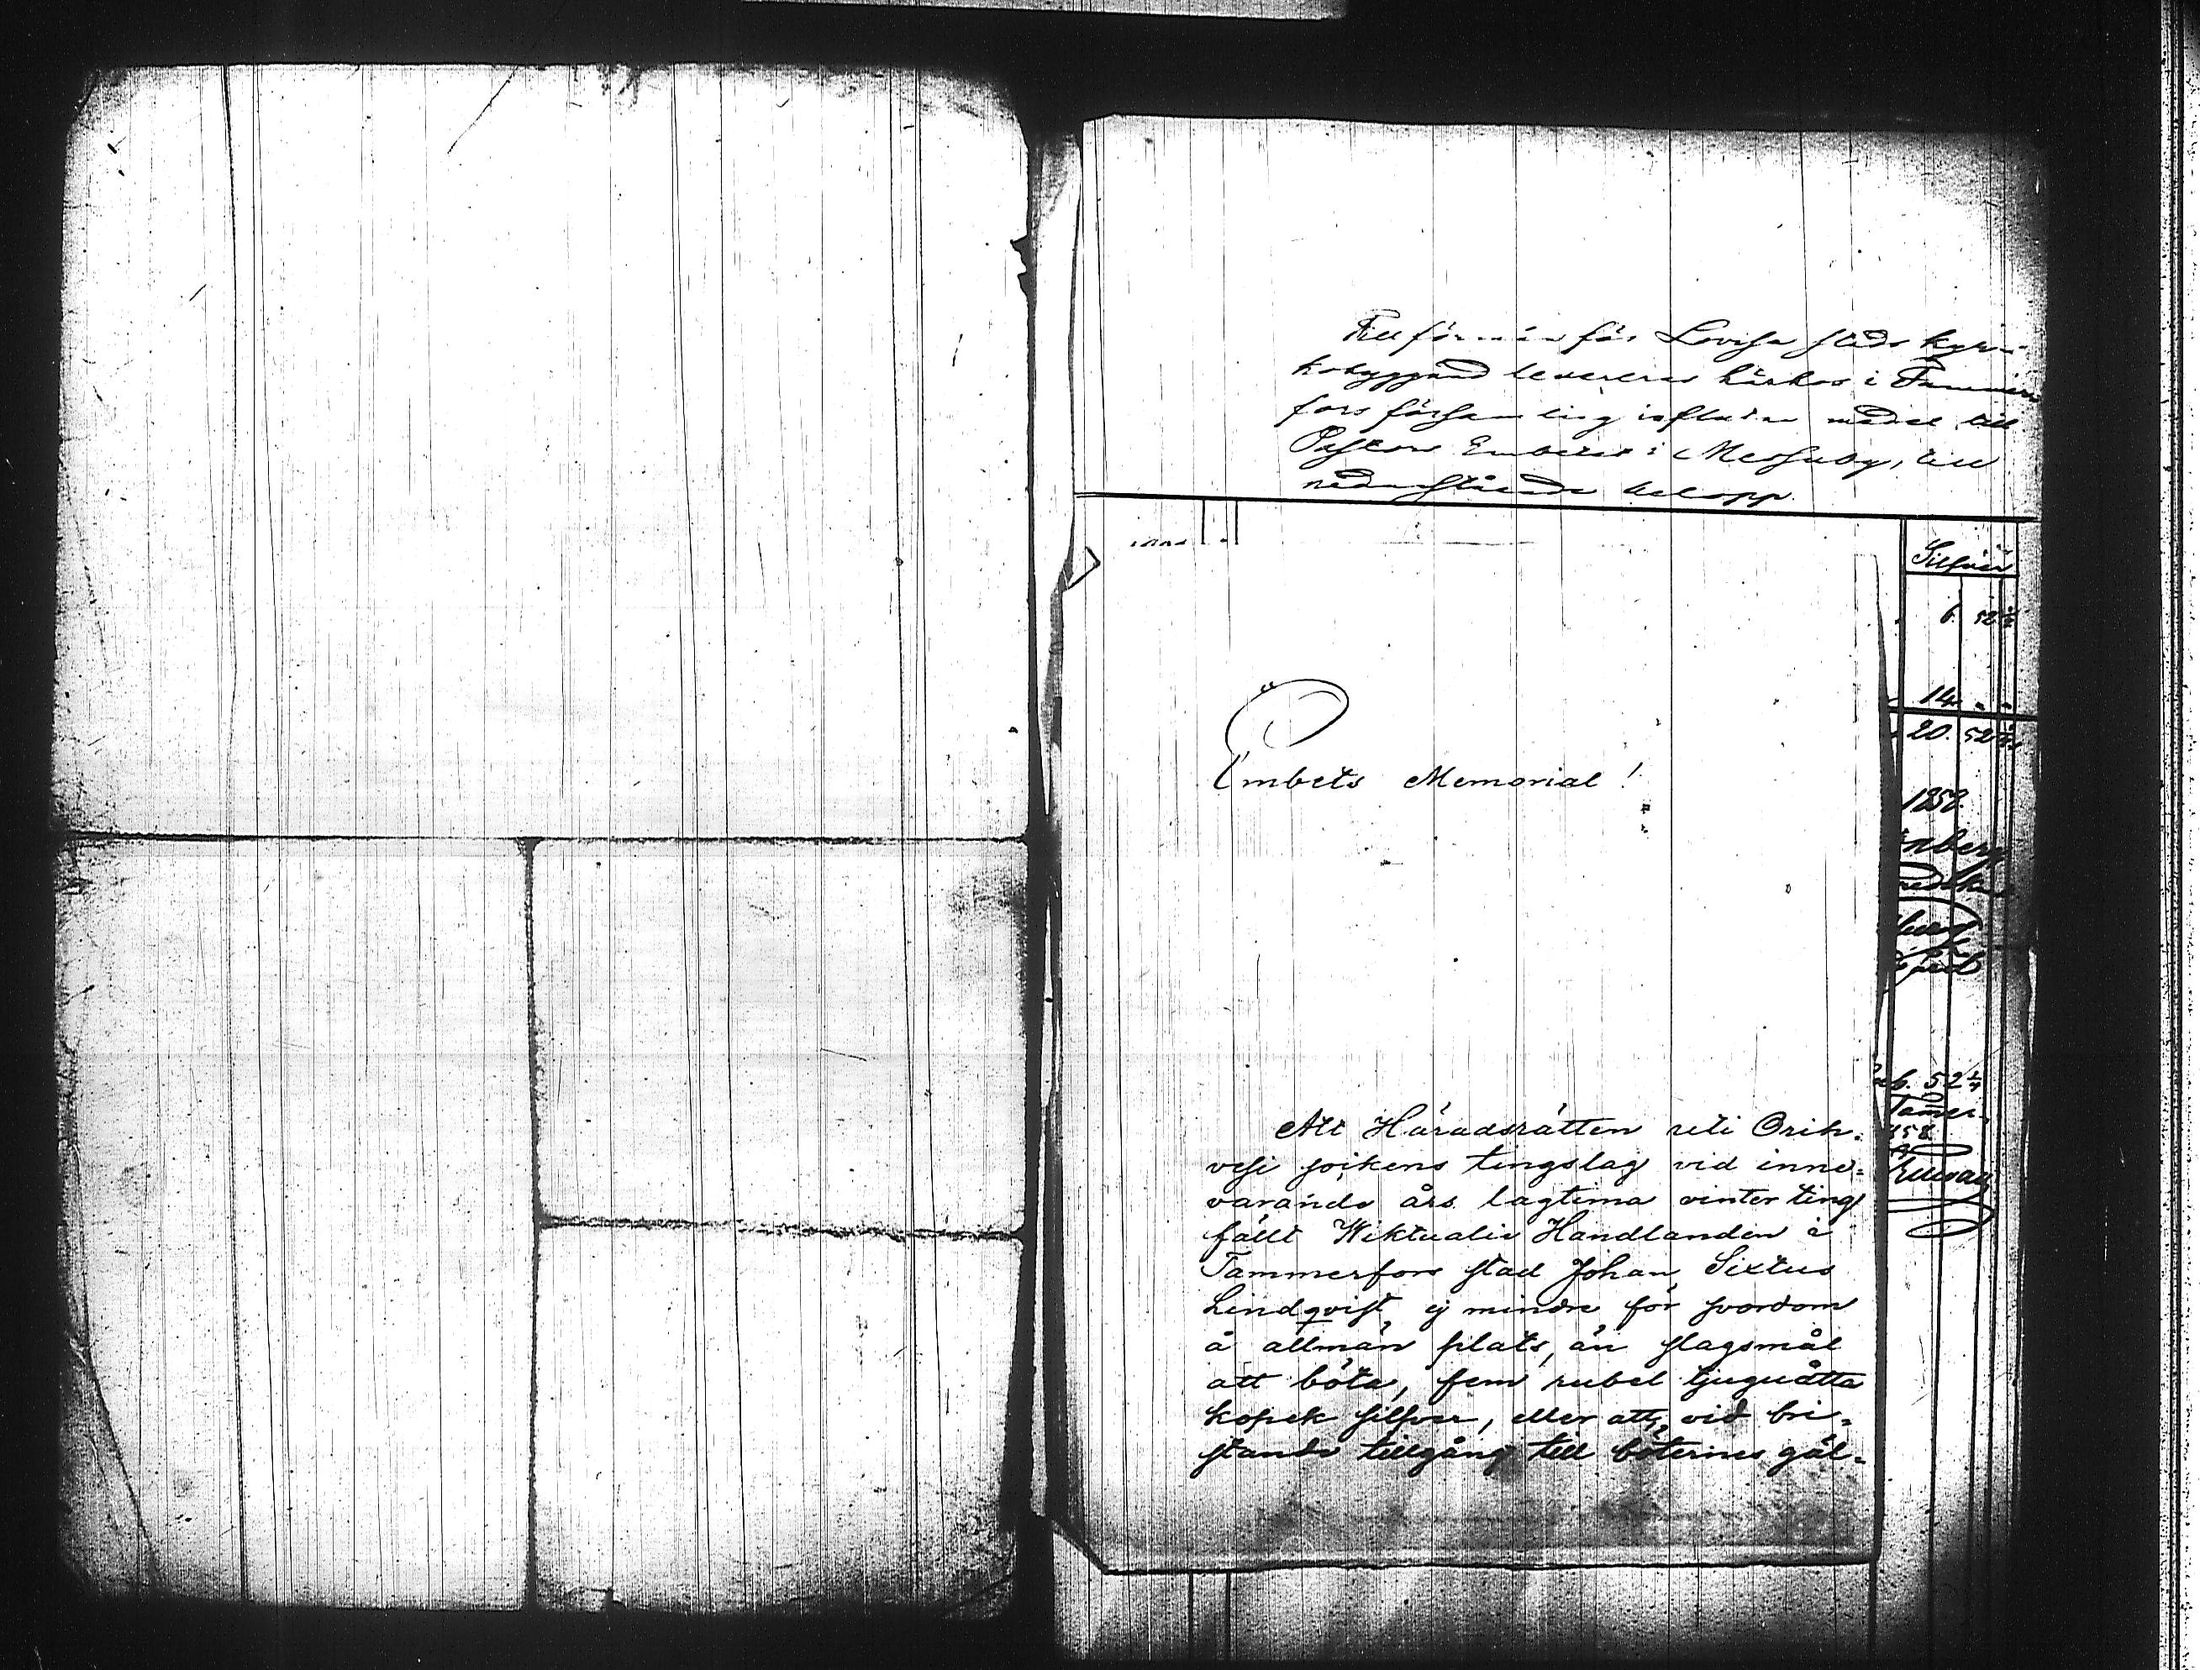 Till förmån för Lovisa stads kyr-
kobyggnad levereras härhos i Tammer
fors församling influtne medel till
Pastors Embetet i Messuby, till
nedanstående belopp.
Silfver
6 52½
14 " "
20. 52½
1858.
Embets Memorial!
Att Häradsrätten uti Orih-
vesi sokens tingslag vid inne-
varande års lagtima vinter ting
fällt Wiktualie Handlanden i
Tammerfors stad Johan Sixtus
Lindqvist, ej mindre för svordom
å allmän plats, än slagsmål
att böta, fem rubel tjuguåtta
kopek silfver, eller att, vid bri-
stande tillgång till böternes gäl-
nberg
52½
Tamer-
858